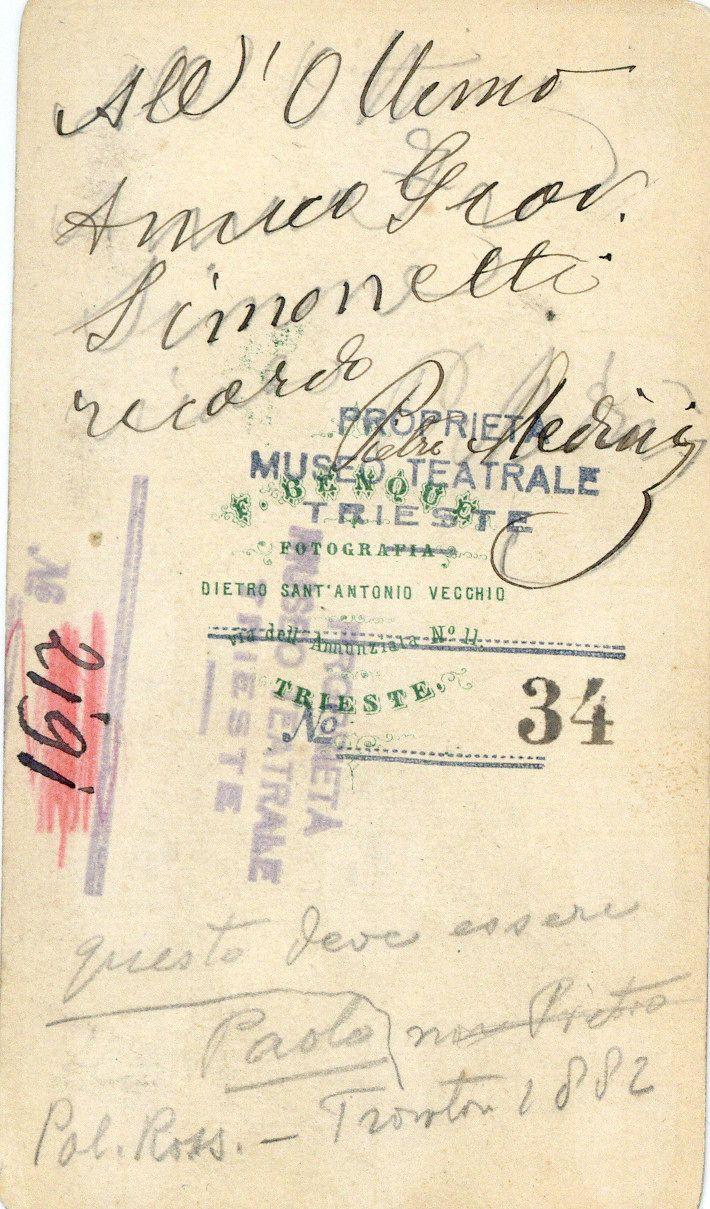 All' Ottimo
Amico Giov.
Simonetti
ricordo
Pietro Medini
PROPRIETÀ
MUSEO TEATRALE
TRIESTE
F. BENQUE
FOTOGRAFIA
DIETRO SANT'ANTONIO VECCHIO
Via dell' Annunziata Nº 11.
TRIESTE.
Nº 34
PROPRIETÀ
MUSEO TEATRALE
TRIESTE
Nº 2191
questo deve essere
Paolo non Pietro
Pol. Ross. –
1882